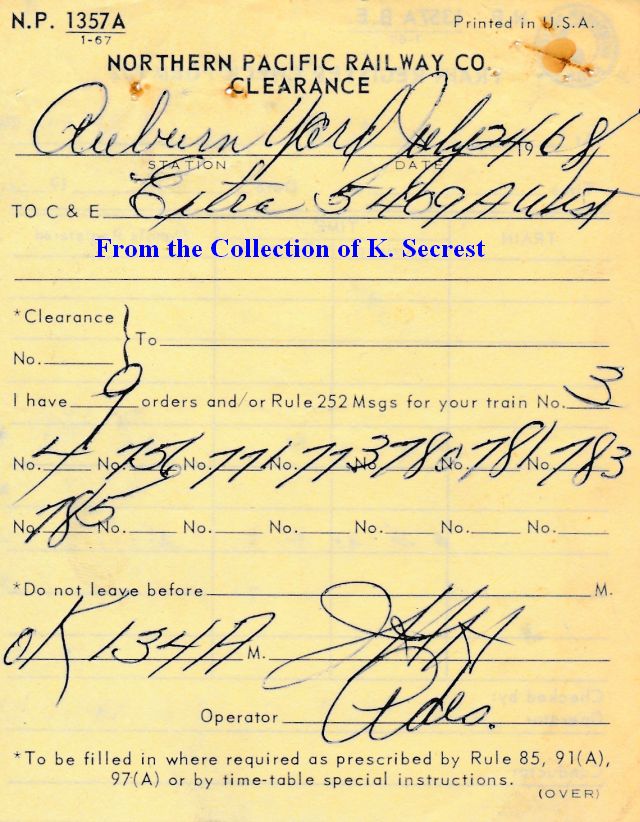 N.P. 1357A Printed in U.S.A.
1-67
NORTHERN PACIFIC RAILWAY CO.
CLEARANCE
Auburn Yard July 24 1968
STATION DATE
TO C & E Extra 5469A West
From the Collection of K. Secrest
*Clearance
To
No.
I have 9 orders and/or Rule 252 Msgs for your train No. 3
No. 4 No. 756 No. 771 No. 773 No. 780 No. 781 No. 783
No. 785 No. No. No. No. No. No.
*Do not leave before M.
OK 134A M. JHH
Operator
*To be filled in where required as prescribed by Rule 85, 91(A),
97(A) or by time-table special instructions.
(OVER)